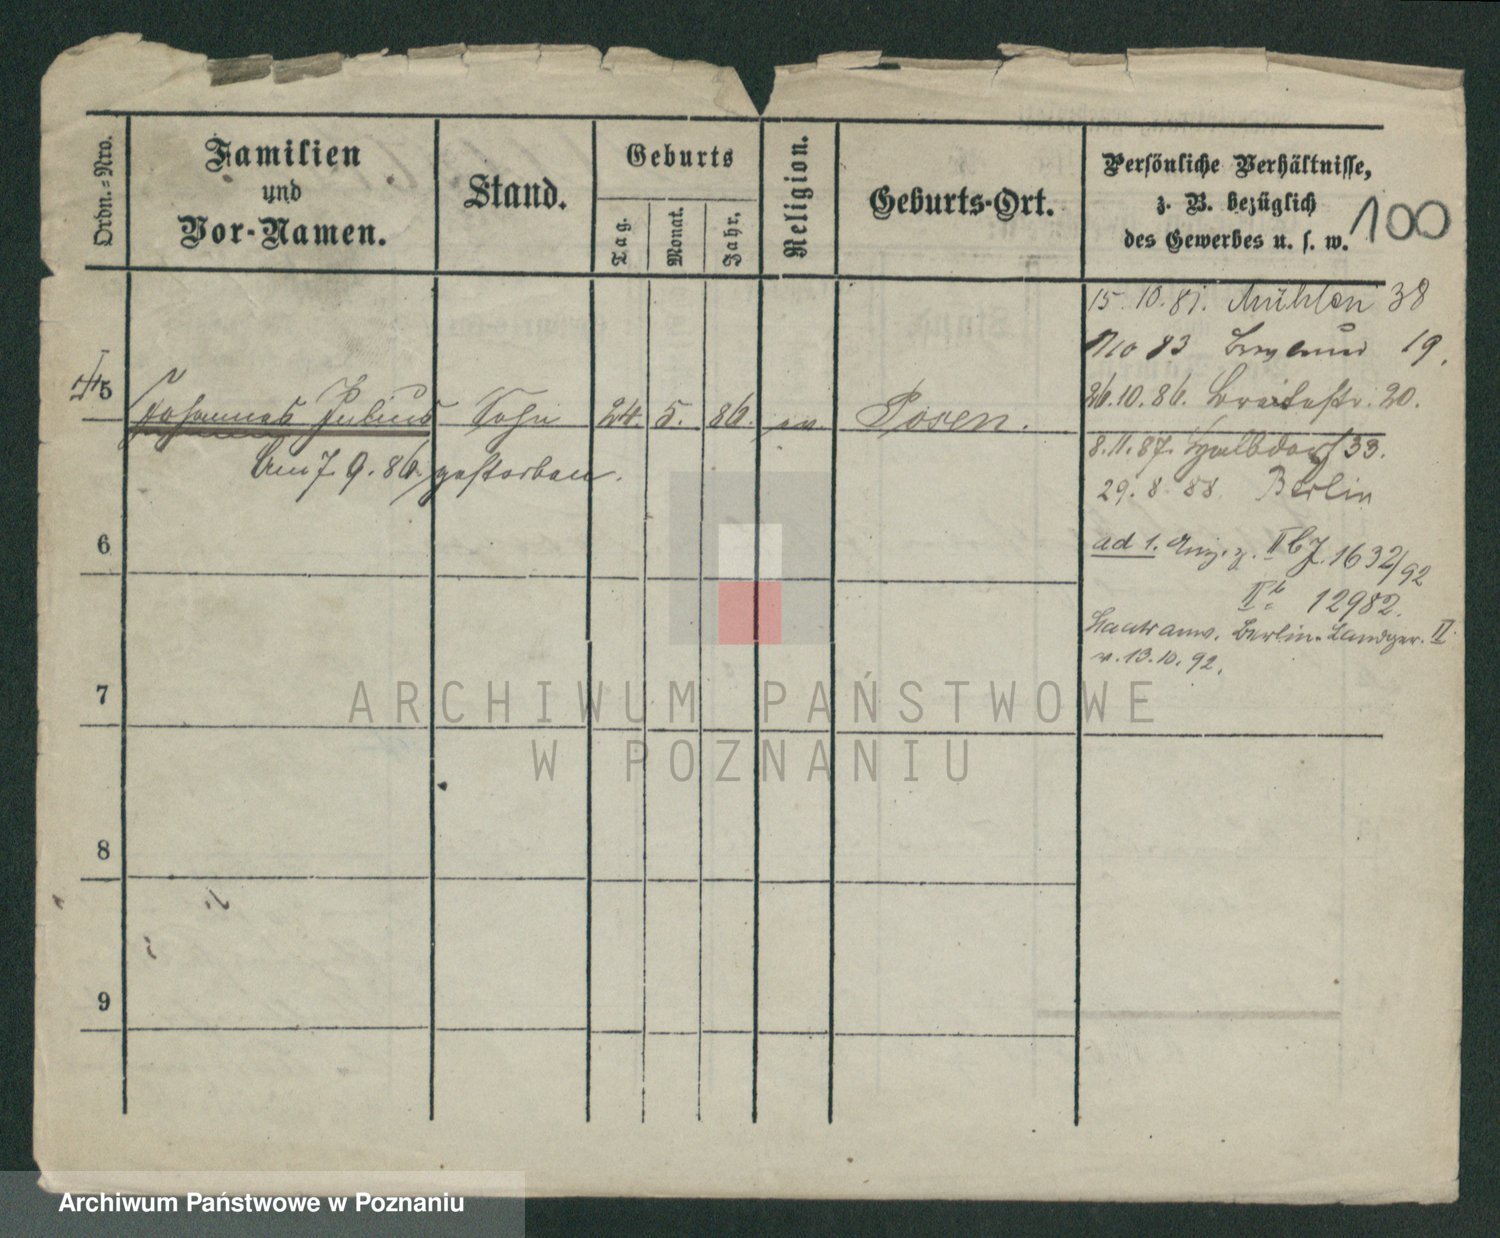 Ordn.=Nro.
Familien
und
Vor-Namen.
Stand.
Geburts
Tag.
Monat.
Jahr.
Religion.
Geburts-Ort.
Persönliche Verhältnisse,
z. B. bezüglich
des Gewerbes u. s. w.
100
15.10.81. Mühlen 38
10 83 19.
26.10.86. Breitestr. 20.
5 Johannes Julius Sohn 24. 5. 86. ev Posen.
am 7. 9. 86. gestorben.
8.11.87. Halbdorf 33.
29. 8. 88. Berlin
6
ad 1. II b J. 1632/92
II b 12982.
Staatsanw. Berlin. Landger. II
v. 13.10.92.
7
8
9
ARCHIWUM PAŃSTWOWE
W POZNANIU
Archiwum Państwowe w Poznaniu